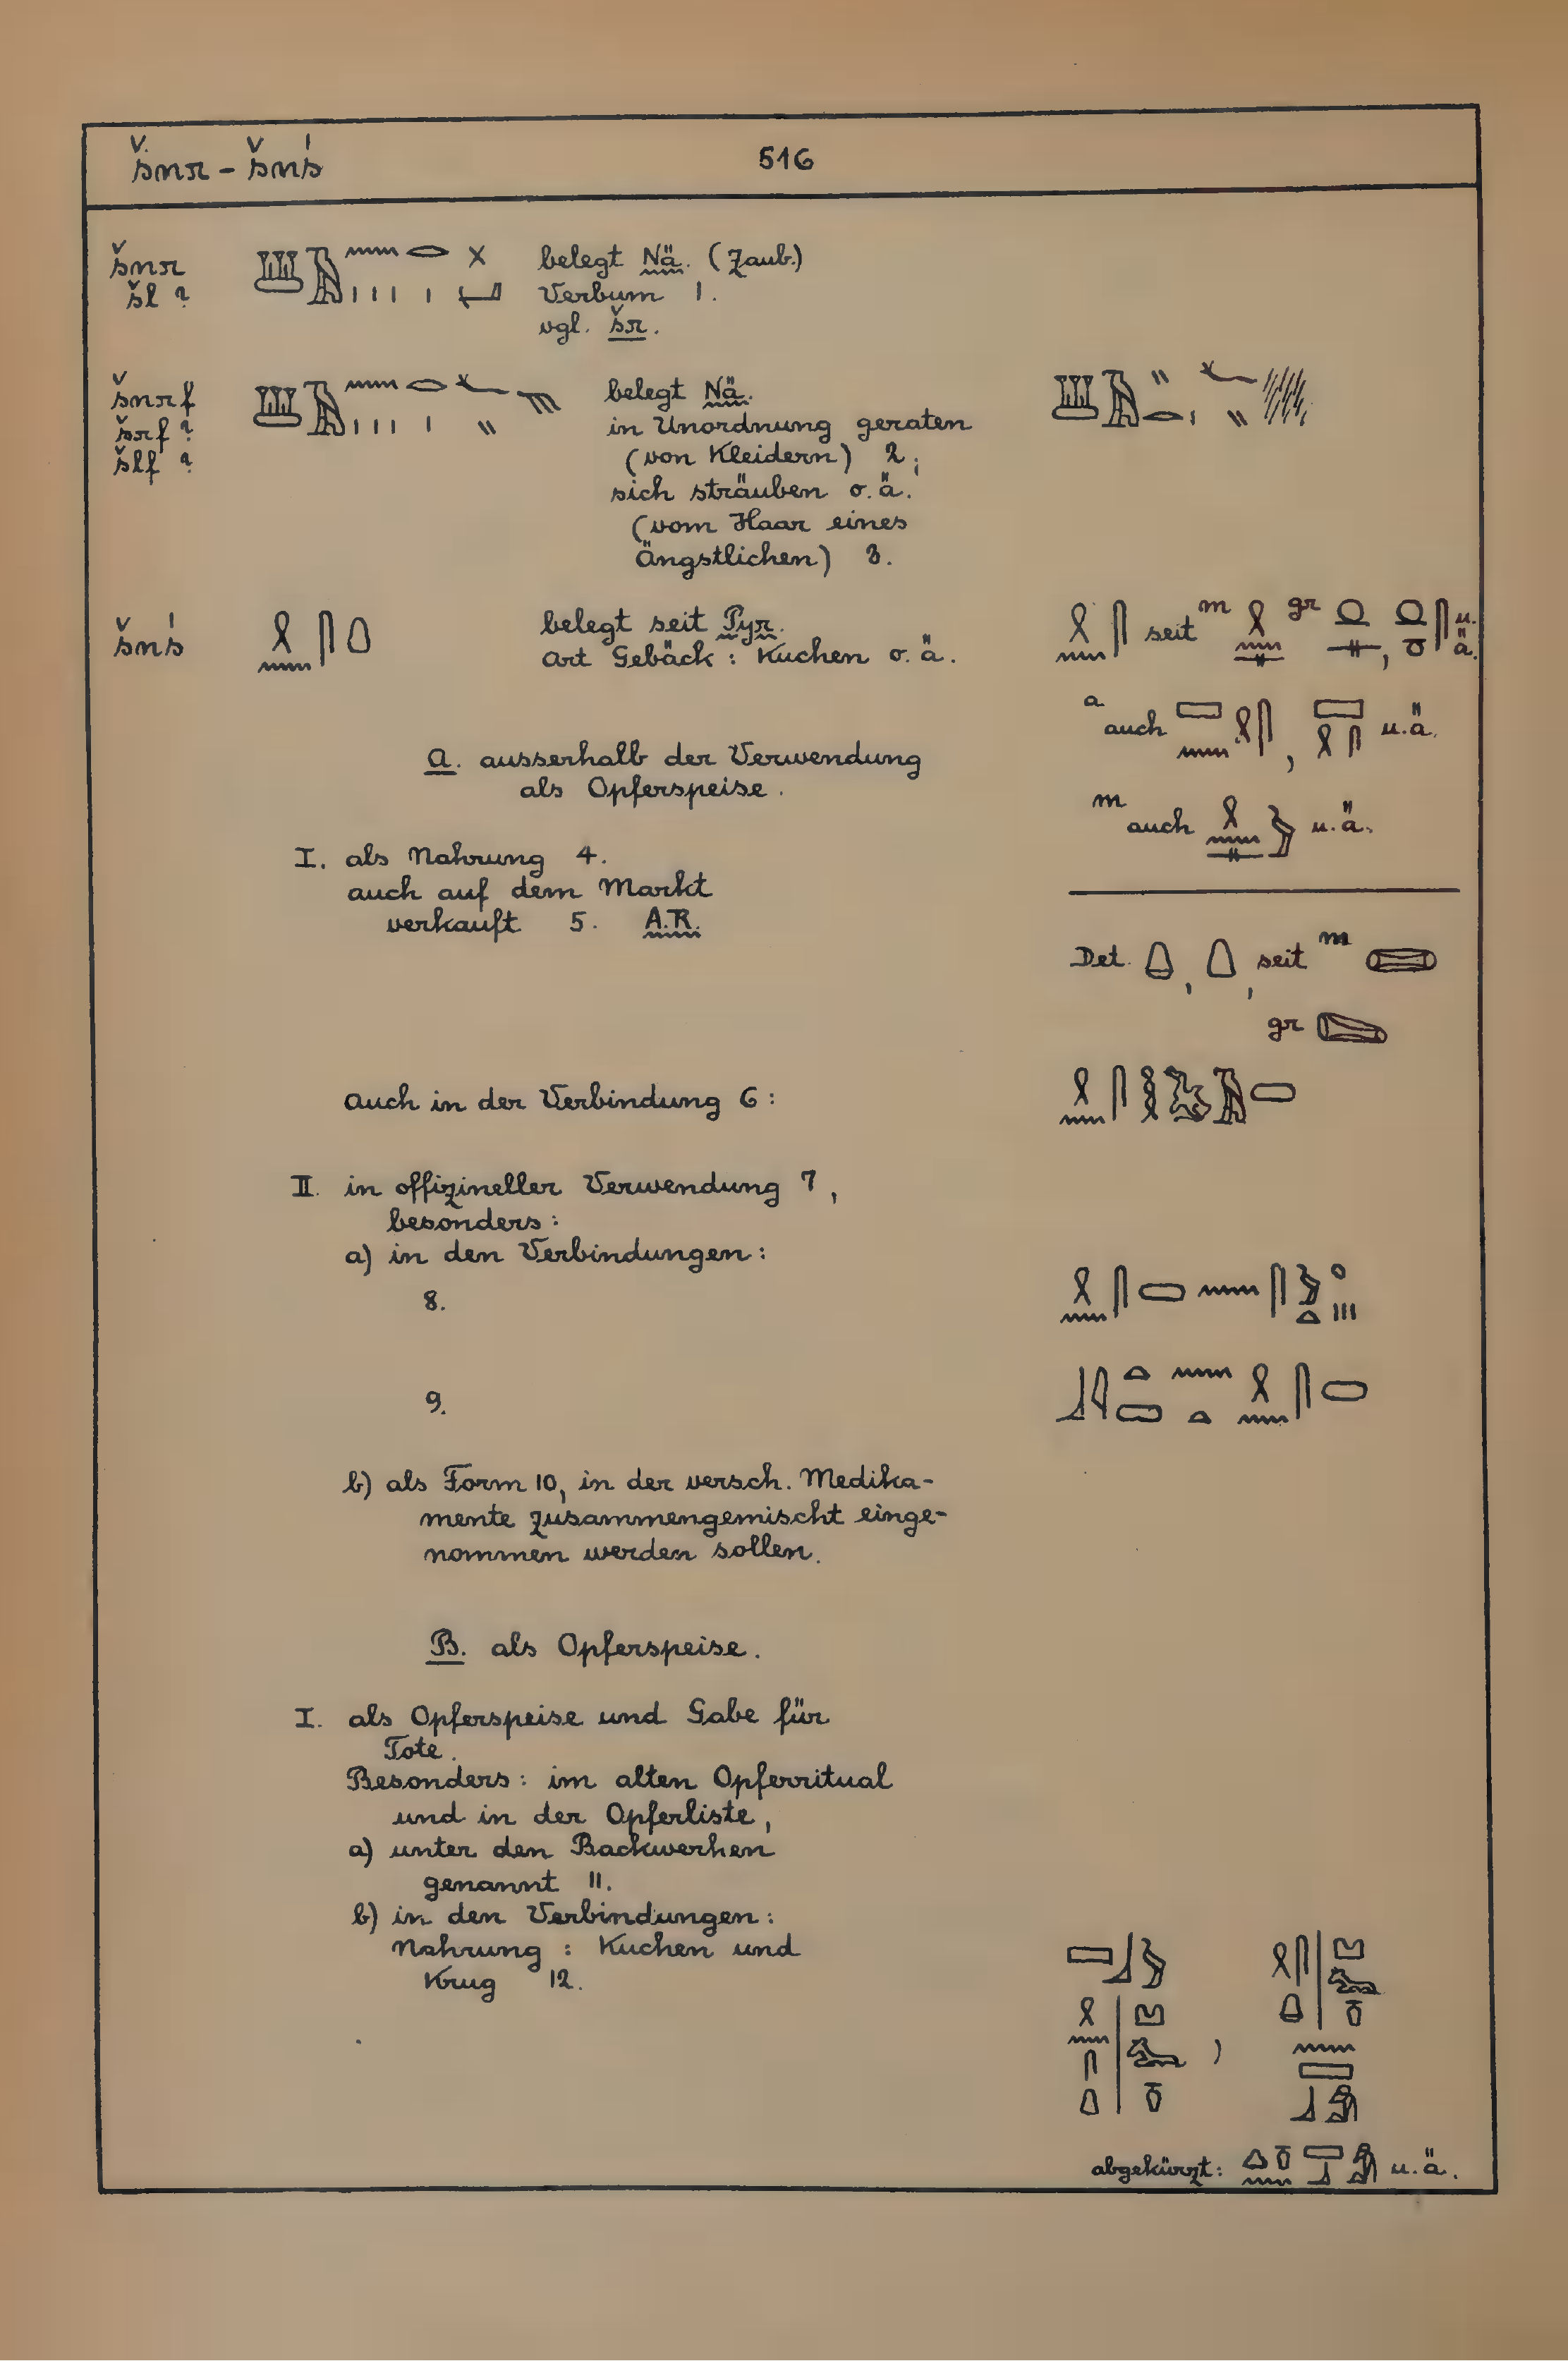 šnr - šnś 516
šnr belegt Nä. (Zaub.)
šl ? Verbum 1.
vgl. šr.
šnrf belegt Nä.
šrf ? in Unordnung geraten
šlf ? (von Kleidern) 2;
sich sträuben o.ä.
(vom Haar eines
Ängstlichen) 3.
šnś belegt seit Pyr.
Art Gebäck: Kuchen o.ä.
seit m gr , u.ä.
a auch , u.ä.
m auch u.ä.
A. ausserhalb der Verwendung
als Opferspeise.
I. als Nahrung 4.
auch auf dem Markt
verkauft 5. A.R.
Det. , , seit m
gr
auch in der Verbindung 6:
II. in offizineller Verwendung 7,
besonders:
a) in den Verbindungen:
8.
9.
b) als Form 10, in der versch. Medika-
mente zusammengemischt einge-
nommen werden sollen.
B. als Opferspeise.
I. als Opferspeise und Gabe für
Tote.
Besonders: im alten Opferritual
und in der Opferliste,
a) unter den Backwerken
genannt 11.
b) in den Verbindungen:
Nahrung: Kuchen und
Krug 12.
abgekürzt: u.ä.